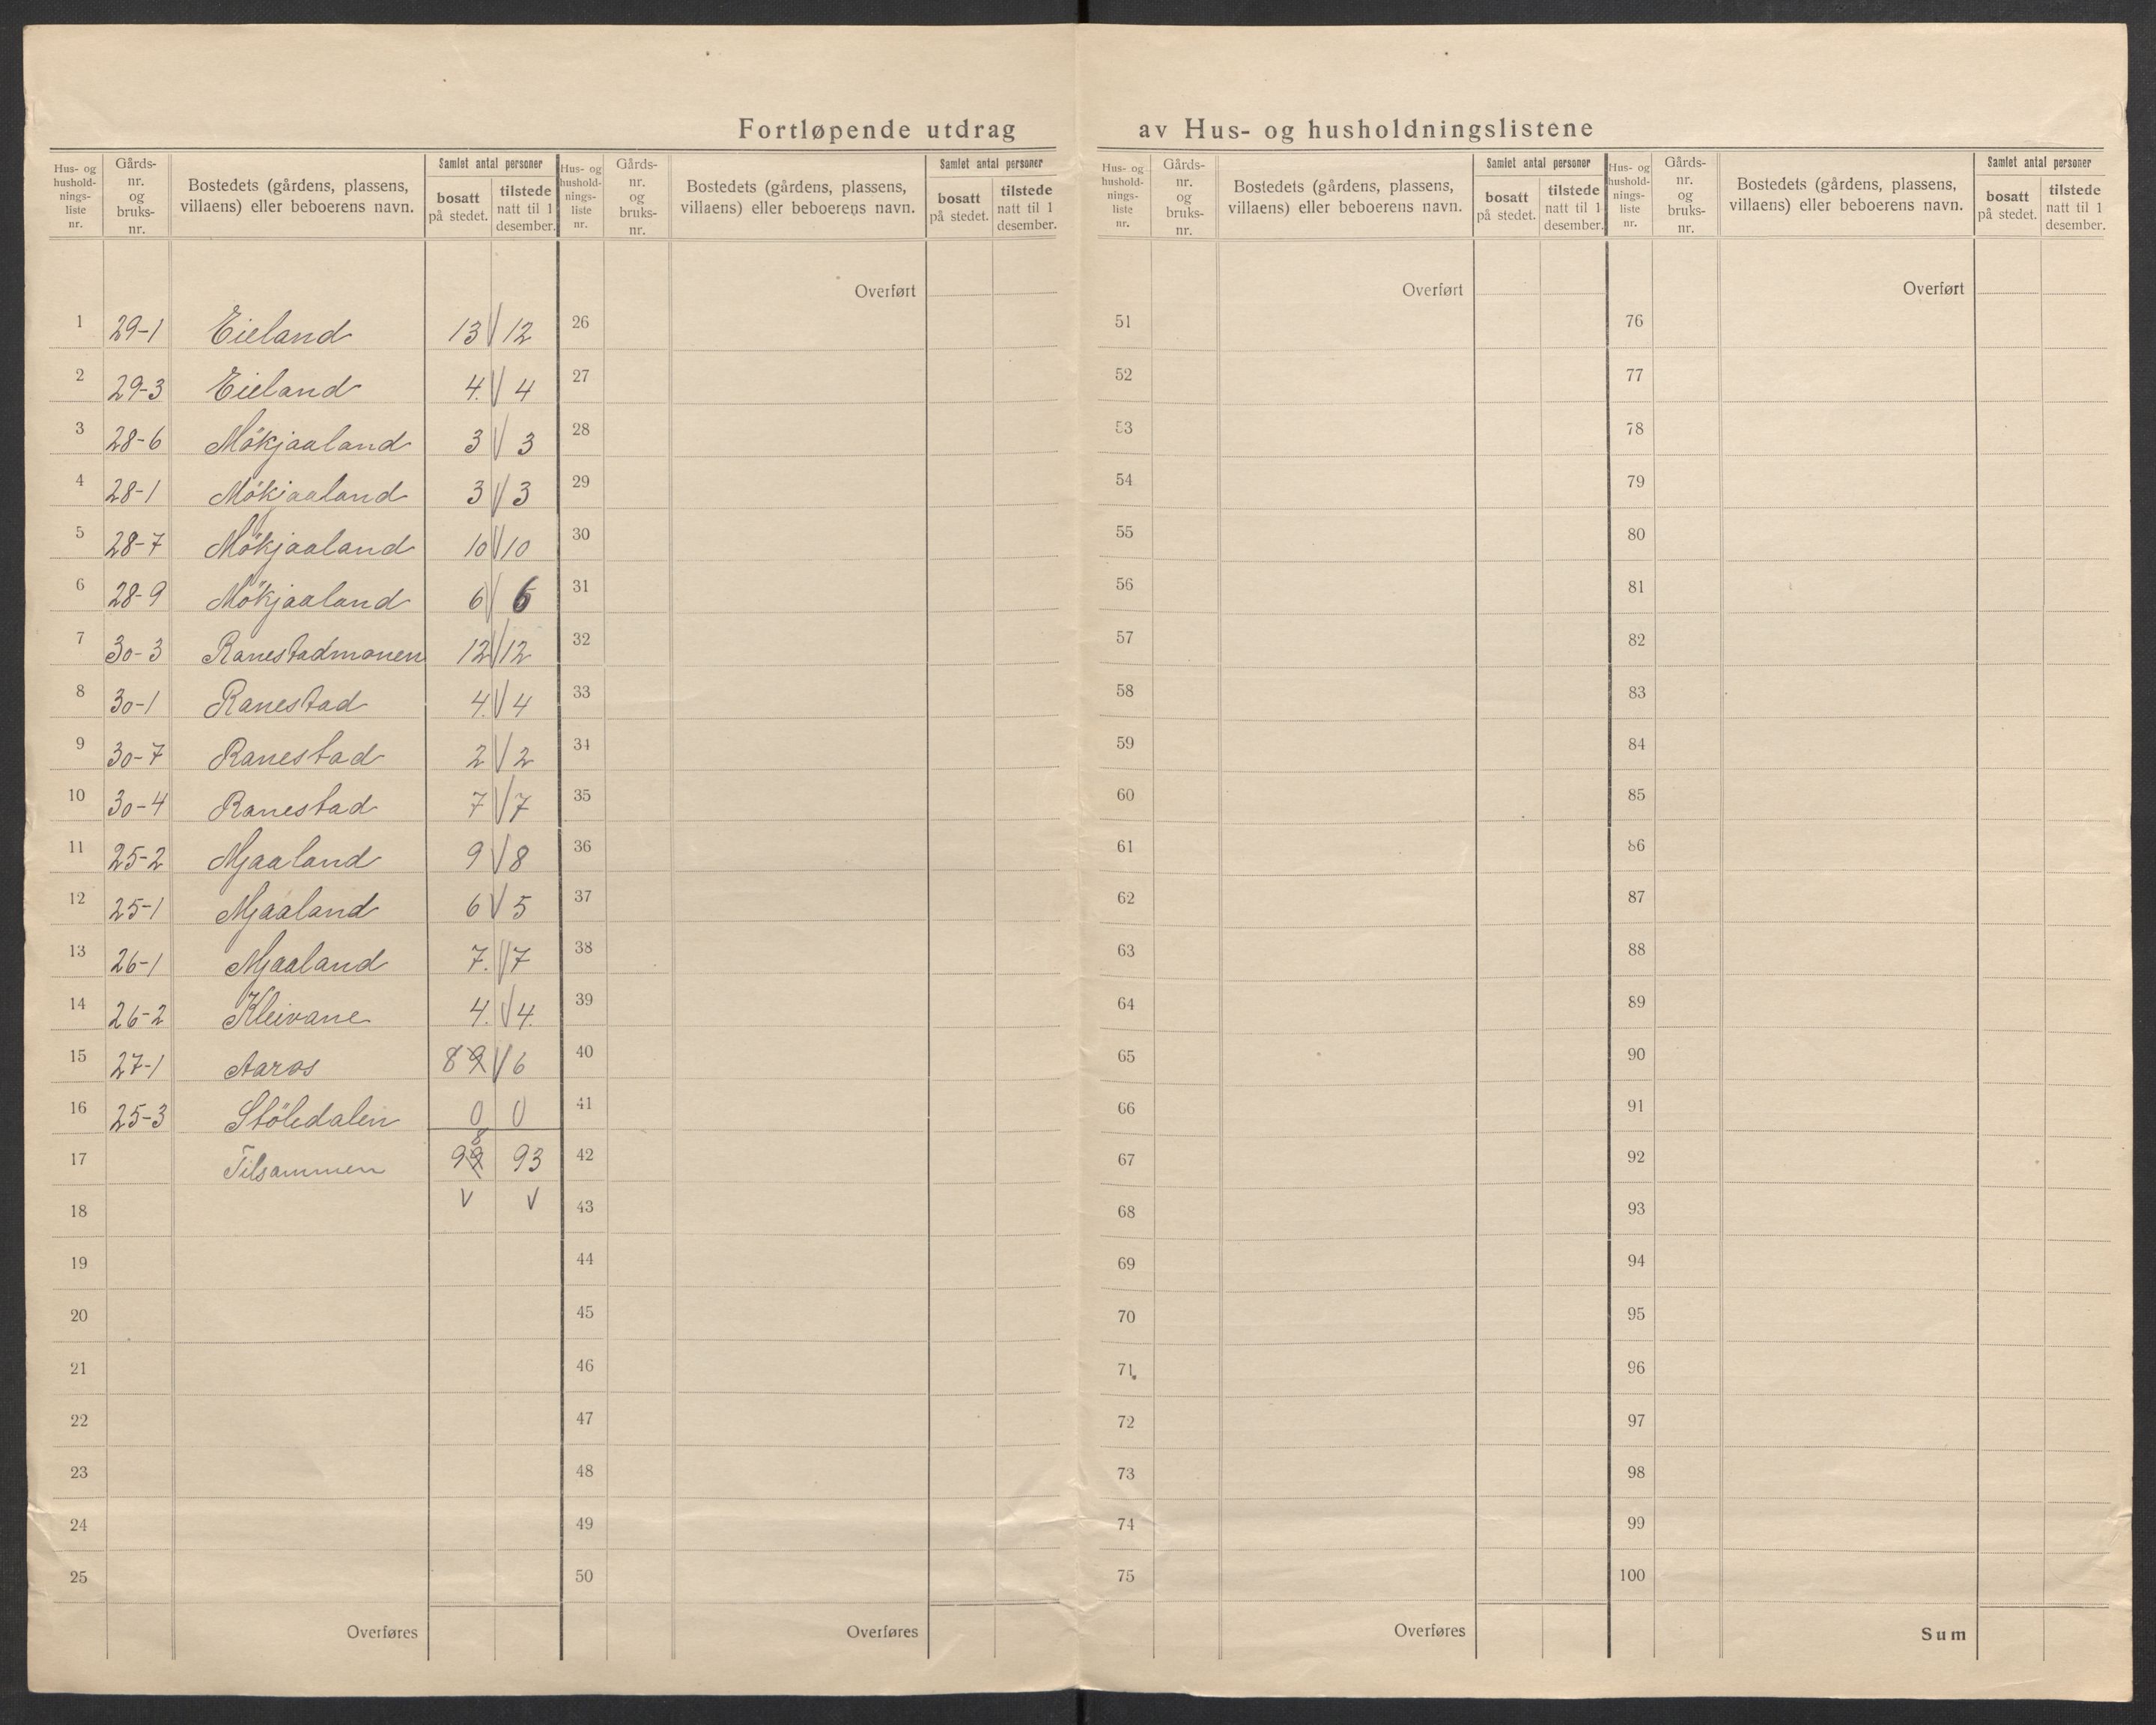 Fortløpende utdrag av Hus- og husholdningslistene
Hus- og husholdnings-liste nr. Gårds-nr. og bruks-nr. Bostedets (gårdens, plassens, villaens) eller beboerens navn. Samlet antal personer bosatt på stedet. tilstede natt til 1 desember.
Hus- og husholdnings-liste nr. Gårds-nr. og bruks-nr. Bostedets (gårdens, plassens, villaens) eller beboerens navn. Samlet antal personer bosatt på stedet. tilstede natt til 1 desember.
Hus- og husholdnings-liste nr. Gårds-nr. og bruks-nr. Bostedets (gårdens, plassens, villaens) eller beboerens navn. Samlet antal personer bosatt på stedet. tilstede natt til 1 desember.
Hus- og husholdnings-liste nr. Gårds-nr. og bruks-nr. Bostedets (gårdens, plassens, villaens) eller beboerens navn. Samlet antal personer bosatt på stedet. tilstede natt til 1 desember.
Overført Overført Overført
1 29-1 Eieland 13 12 26 51 76
2 29-3 Eieland 4. 4 27 52 77
3 28-6 Mökjaaland 3 3 28 53 78
4 28-1 Mökjaaland 3 3 29 54 79
5 28-7 Mökjaaland 10 10 30 55 80
6 28-9 Mökjaaland 6 6 31 56 81
7 30-3 Ranestadmonen 12 12 32 57 82
8 30-1 Ranestad 4. 4 33 58 83
9 30-7 Ranestad 2 2 34 59 84
10 30-4 Ranestad 7 7 35 60 85
11 25-2 Mjaaland 9 8 36 61 86
12 25-1 Mjaaland 6 5 37 62 87
13 26-1 Mjaaland 7. 7 38 63 88
14 26-2 Kleivane 4. 4. 39 64 89
15 27-1 Aaros 8 9 6 40 65 90
16 25-3 Stöledalen 0 0 41 66 91
8
17 Tilsammen 99 93 42 67 92
18 43 68 93
19 44 69 94
20 45 70 95
21 46 71 96
22 47 72 97
23 48 73 98
24 49 74 99
25 50 75 100
Overføres Overføres Overføres Sum